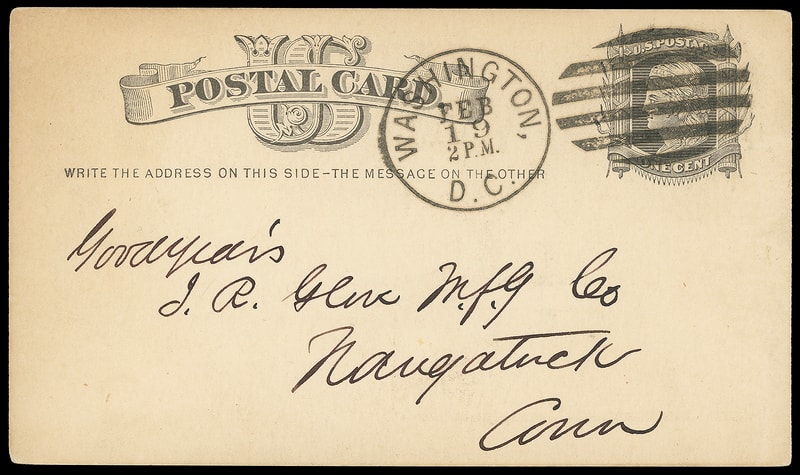 US
POSTAL CARD
WRITE THE ADDRESS ON THIS SIDE-THE MESSAGE ON THE OTHER
WASHINGTON, D.C.
FEB
19
2 P.M.
U.S. POSTAGE
ONE CENT
Goodyear's
I. R. Glove M.f.g Co
Naugatuck
Conn